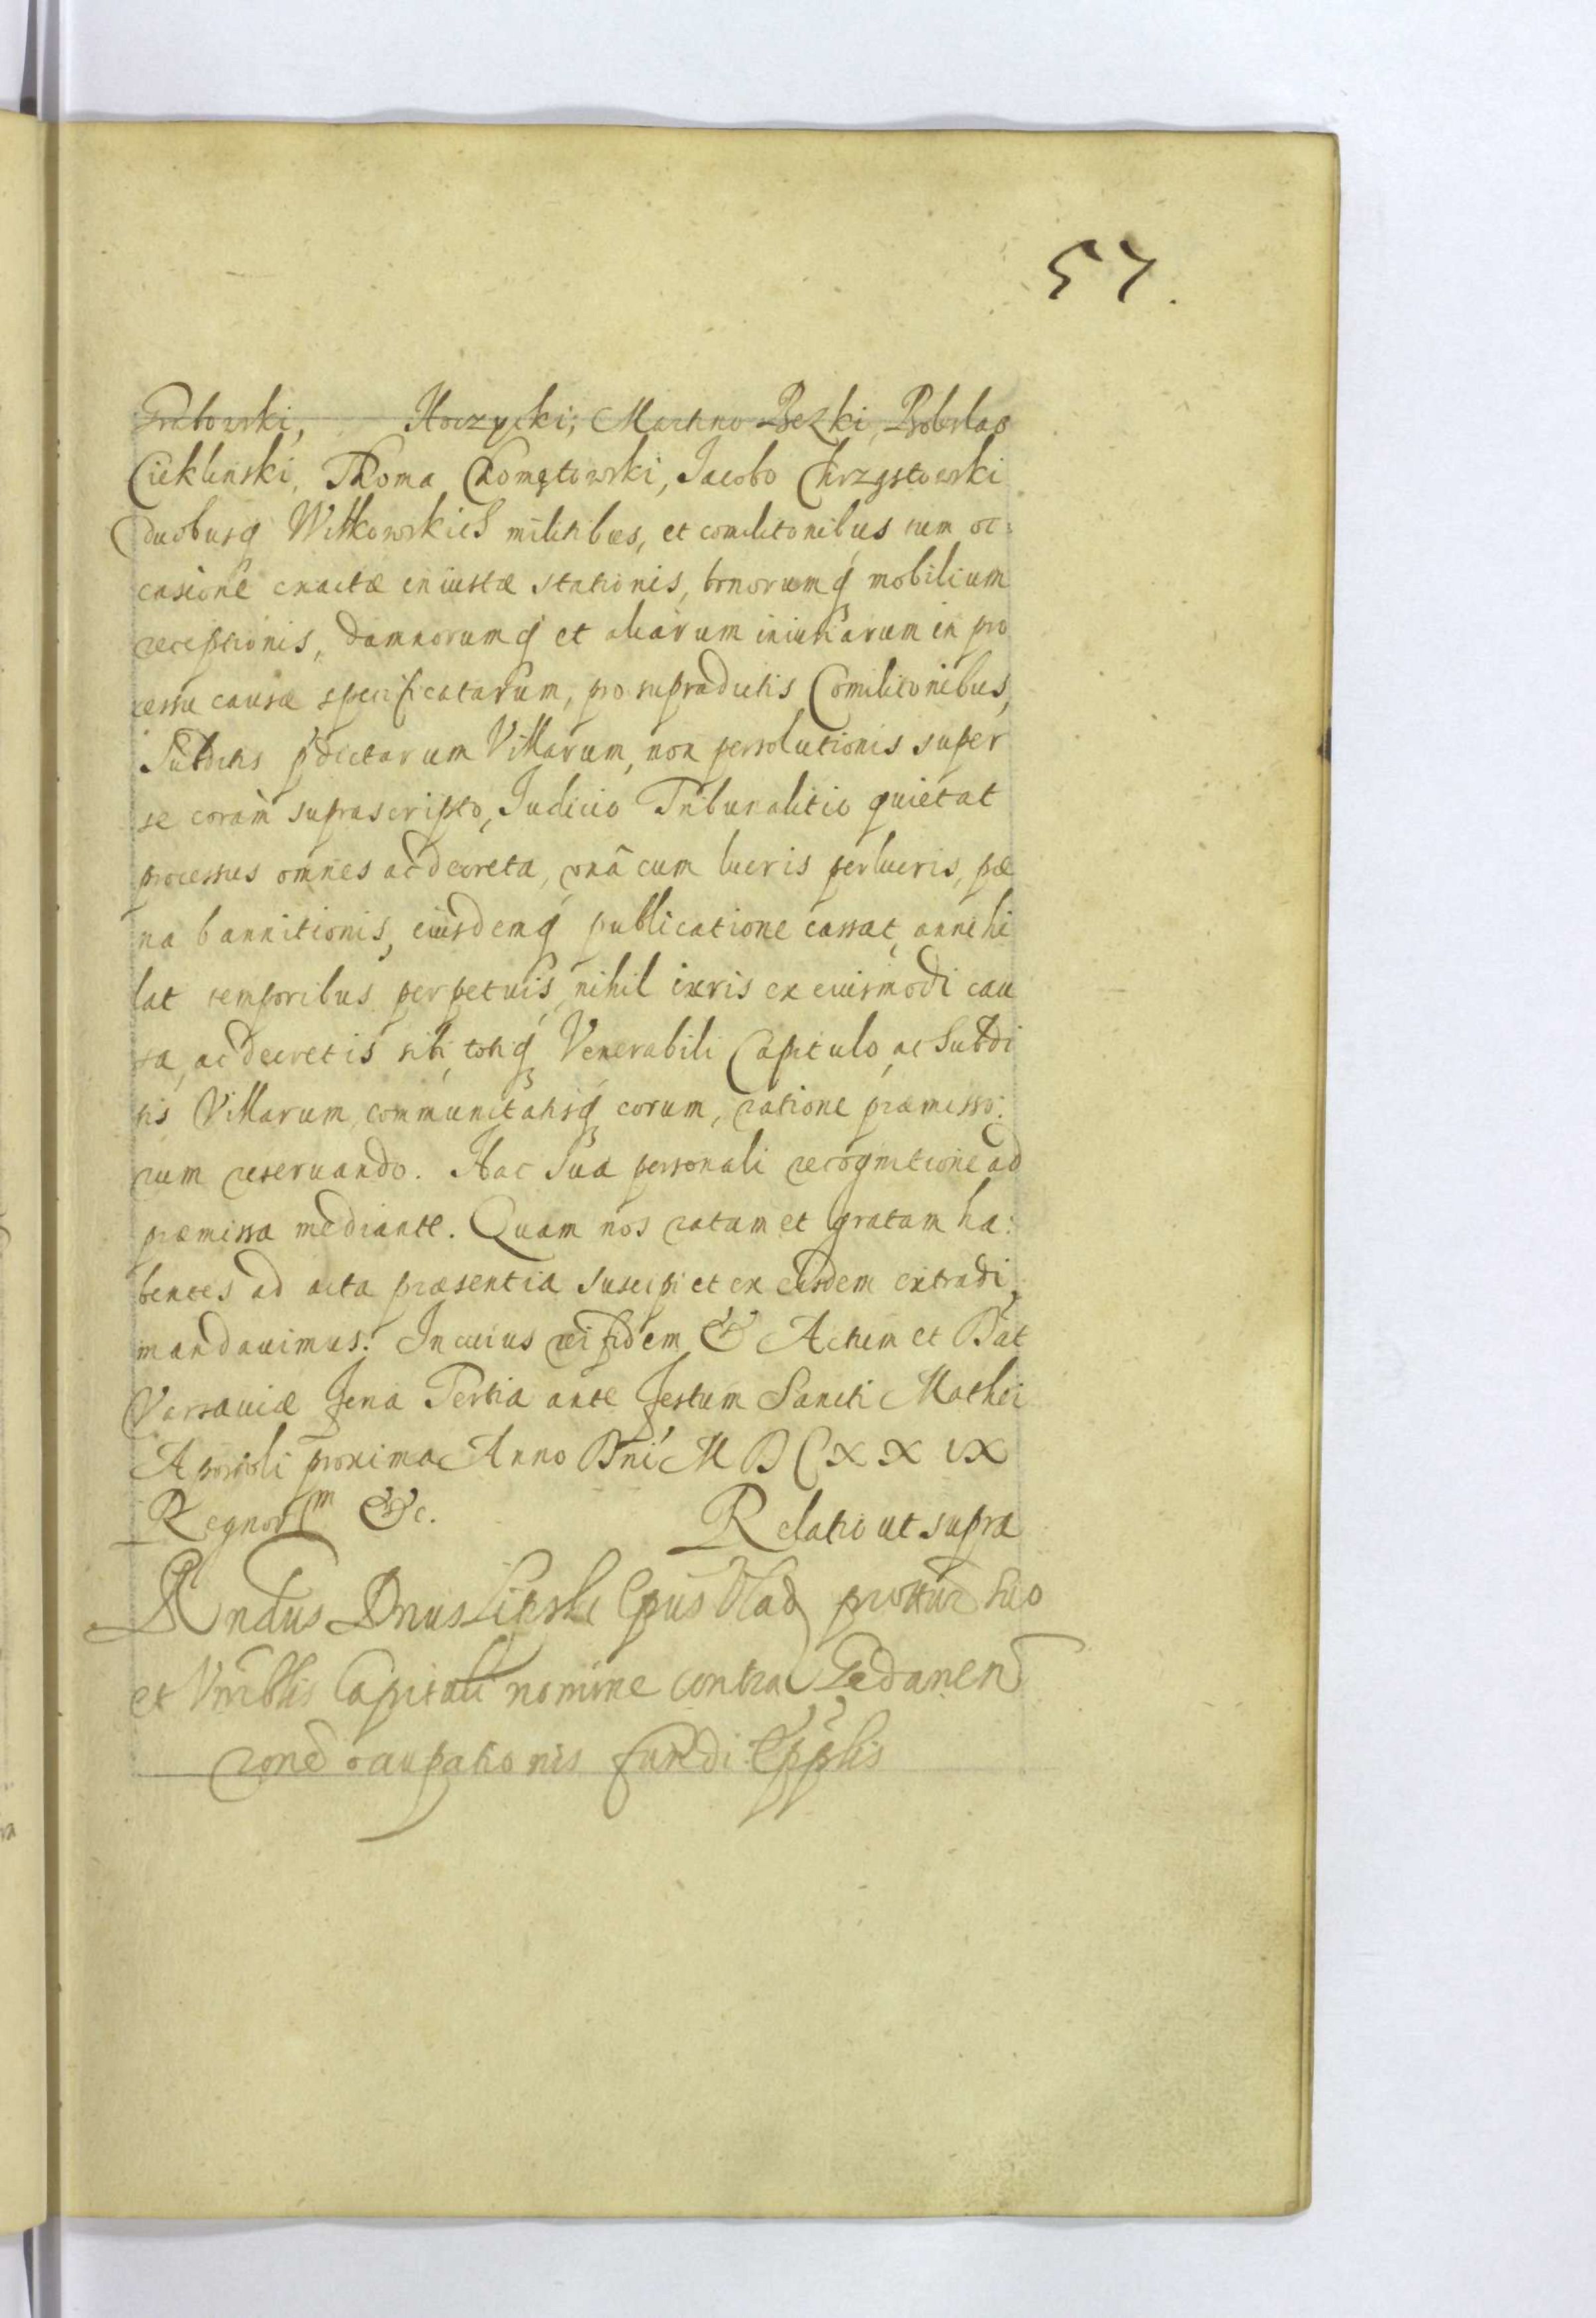 57.
Grabowski, Hoczycki, Martino Bezki, Boleslao
Cieklinski, Thoma Chomętowski, Jacobo Chrząstowski
duobusq Witkowskich militibus, et comilitonibus tum oc:
casione exactæ iniustæ stationis, bonorumq mobilium
receptionis, damnorumq et aliarum iniuriarum in pro
cessu causæ specificatarum, pro supradictis Comilitonibus,
Subditis pdictarum Villarum, non persolutionis super
se coram suprascripto, Judicio Tribunalitio quietat
processus omnes ac decreta, unâ cum lucris perlucris, pœ
na bannitionis, eiusdemq publicatione cassat, annihi
lat temporibus perpetuis, nihil iuris ex eiusmodi cau
sa, ac decretis sibi, totiq Venerabili Capitulo, ac Subdi
tis Villarum, communitatisq eorum, ratione præmisso:
rum reseruando. Hac sua personali recognitione ad
præmissa mediante. Quam nos ratam et gratam ha:
bentes ad acta præsentia suscipi et ex eisdem extradi,
mandauimus. In cuius rei fidem & Actum et Dat
Varsauiæ feria Tertia ante festum Sancti Mathei
Apostoli proxima Anno Dni M D C X X IX
Regnor m &c. Relatio ut supra
Rndus Dnus Lipski Epus Vlad suo
et Vnrblis Capituli nomine contra Gedanen
rone occupationis fundi Epplis